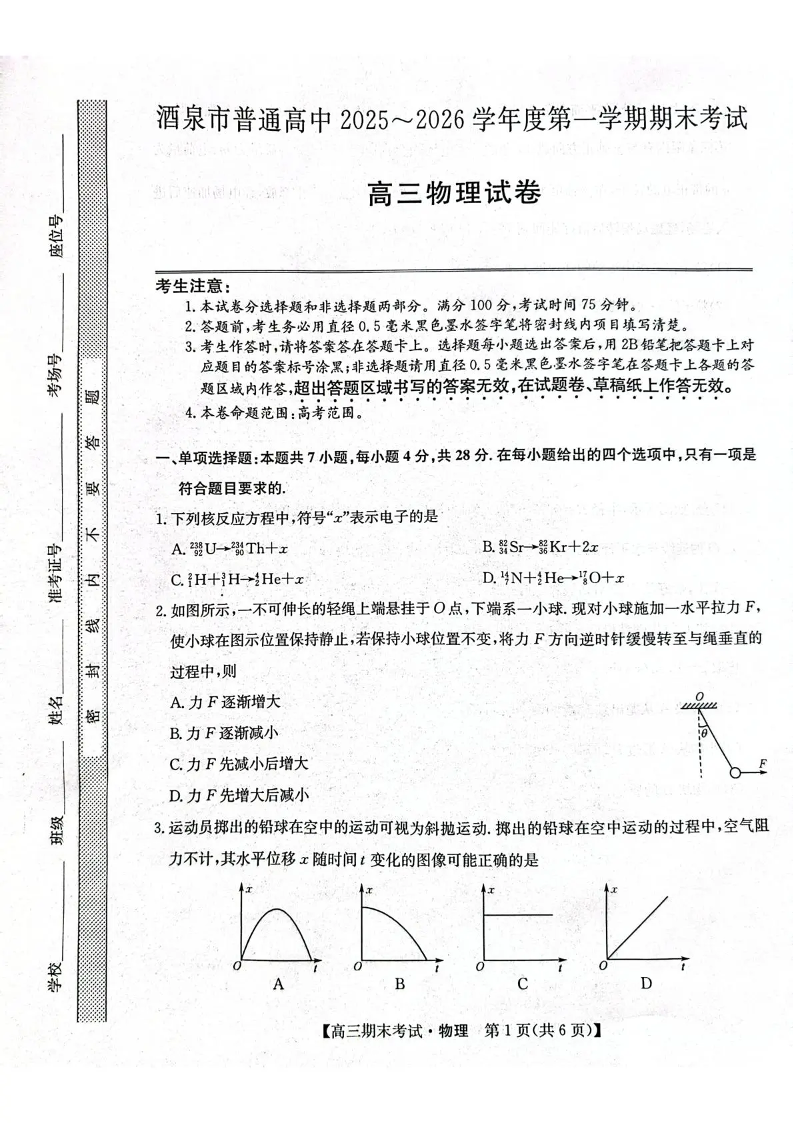 酒泉市普通高中 2025～2026 学年度第一学期期末考试
高三物理试卷
考生注意：
1. 本试卷分选择题和非选择题两部分。满分 100 分，考试时间 75 分钟。
2. 答题前，考生务必用直径 0.5 毫米黑色墨水签字笔将密封线内项目填写清楚。
3. 考生作答时，请将答案答在答题卡上。选择题每小题选出答案后，用 2B 铅笔把答题卡上对
应题目的答案标号涂黑；非选择题请用直径 0.5 毫米黑色墨水签字笔在答题卡上各题的答
题区域内作答，超出答题区域书写的答案无效，在试题卷、草稿纸上作答无效。
4. 本卷命题范围：高考范围。
一、单项选择题：本题共 7 小题，每小题 4 分，共 28 分. 在每小题给出的四个选项中，只有一项是
符合题目要求的.
1. 下列核反应方程中，符号“x”表示电子的是
A. ²³⁸₉₂U→²³⁴₉₀Th+x
B. ⁸²₃₄Sr→⁸²₃₆Kr+2x
C. ²₁H+³₁H→⁴₂He+x
D. ¹⁴₇N+⁴₂He→¹⁷₈O+x
2. 如图所示，一不可伸长的轻绳上端悬挂于 O 点，下端系一小球. 现对小球施加一水平拉力 F，
使小球在图示位置保持静止，若保持小球位置不变，将力 F 方向逆时针缓慢转至与绳垂直的
过程中，则
A. 力 F 逐渐增大
B. 力 F 逐渐减小
C. 力 F 先减小后增大
D. 力 F 先增大后减小
O
θ
F
3. 运动员掷出的铅球在空中的运动可视为斜抛运动. 掷出的铅球在空中运动的过程中，空气阻
力不计，其水平位移 x 随时间 t 变化的图像可能正确的是
x
O
t
A
x
O
t
B
x
O
t
C
x
O
t
D
【高三期末考试·物理 第 1 页(共 6 页)】
座位号
考场号
准考证号
姓名
班级
学校
密 封 线 内 不 要 答 题